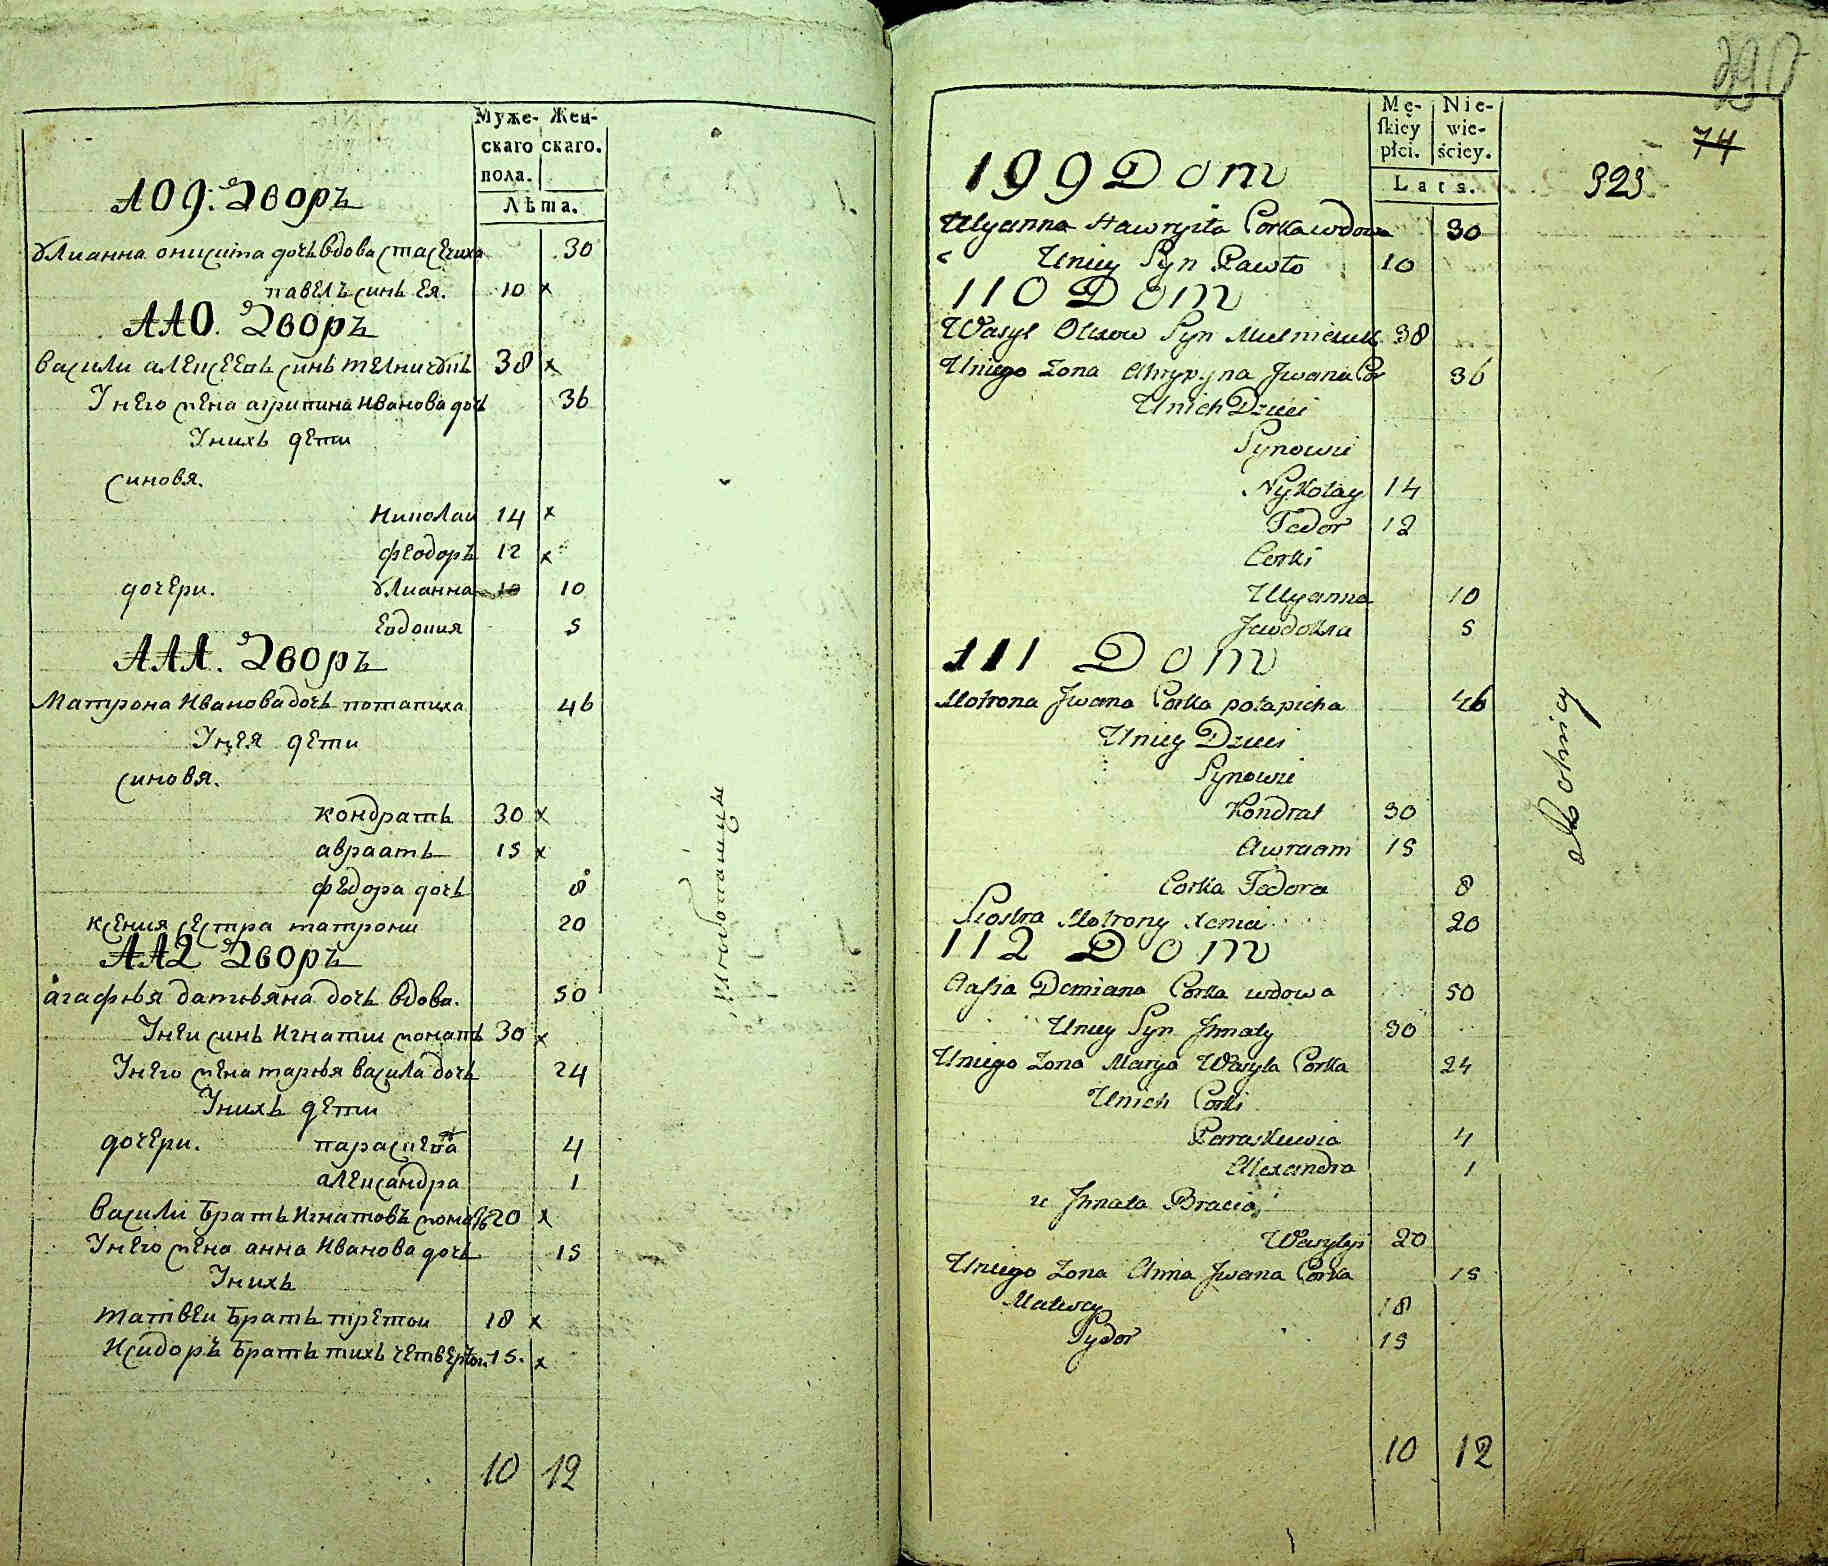 Муже- Жен-
скаго скаго.
пола.
Лѣта.
109. Дворъ
Улианна онисима дочь вдова стасечиха 30
павелъ синь ея. 10 x
110. Дворъ
васили алексеевь синь мелничукь 38 x
Унего жена агрипина иванова дочь 36
Унихь дети
синовя.
Николаи 14 x
феодоръ 12 x
дочери. Улианна 10 10
Евдокия 5
111. Дворъ
Матрона ивановадочь потапиха 46
Унея дети
синовя.
кондрать 30 x
авраамь 15 x
федора дочь 8
ксения сестра матрони 20
112 Дворъ
агафья дамьяна дочь вдова. 50
Унеи синь игнатии 30 x
Унего жена марья васила дочь 24
Унихь дети
дочери. параскева 4
александра 1
васили брать игнатовъ 20 x
Унего жена анна иванова дочь 15
Унихь
матвеи брать третои 18 x
исидоръ брать тихь четвертои. 15. x
10 12
290
Mę- Nie-
ſkiey wie-
płci. ściey.
Lats.
74
323
199 Dom
Ulyanna Hawryiła Corka wdowa 30
Uniey Syn Pawło 10
110 Dom
Wasyl Olexow Syn Mielniczuk 38
Uniego Zona Ahrypyna Jwana Cor 36
Unich Dzieci
Synowie
Nykołay 14
Fedor 12
Corki
Ulyanna 10
Jewdokia 5
111 Dom
Motrona Jwana Corka potapicha 46
Uniey Dzieci
Synowie
Kondrat 30
Awraam 15
Corka Fedora 8
Siostra Motrony Xenia 20
112 Dom
Demiana Corka wdowa 50
Uniey Syn Jhnaty 30
Uniego Zona Marya Wasyla Corka 24
Unich Corki
Paraskiewia 4
Alexandra 1
u Jhnata Bracia
Wasylyi 20
Uniego Zona Anna Jwana Corka 15
Matwey 18
Sydor 15
10 12